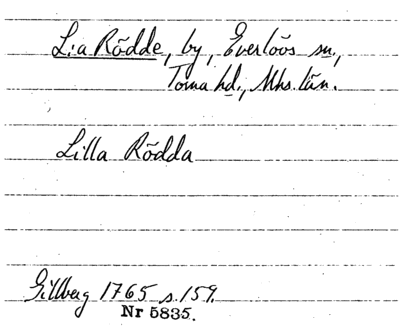 L:a Rödde, by, Everlöös sn,
Torna hd., Mhs. län.
Lilla Rödda
Gillberg 1765 s. 159.
Nr 5835.